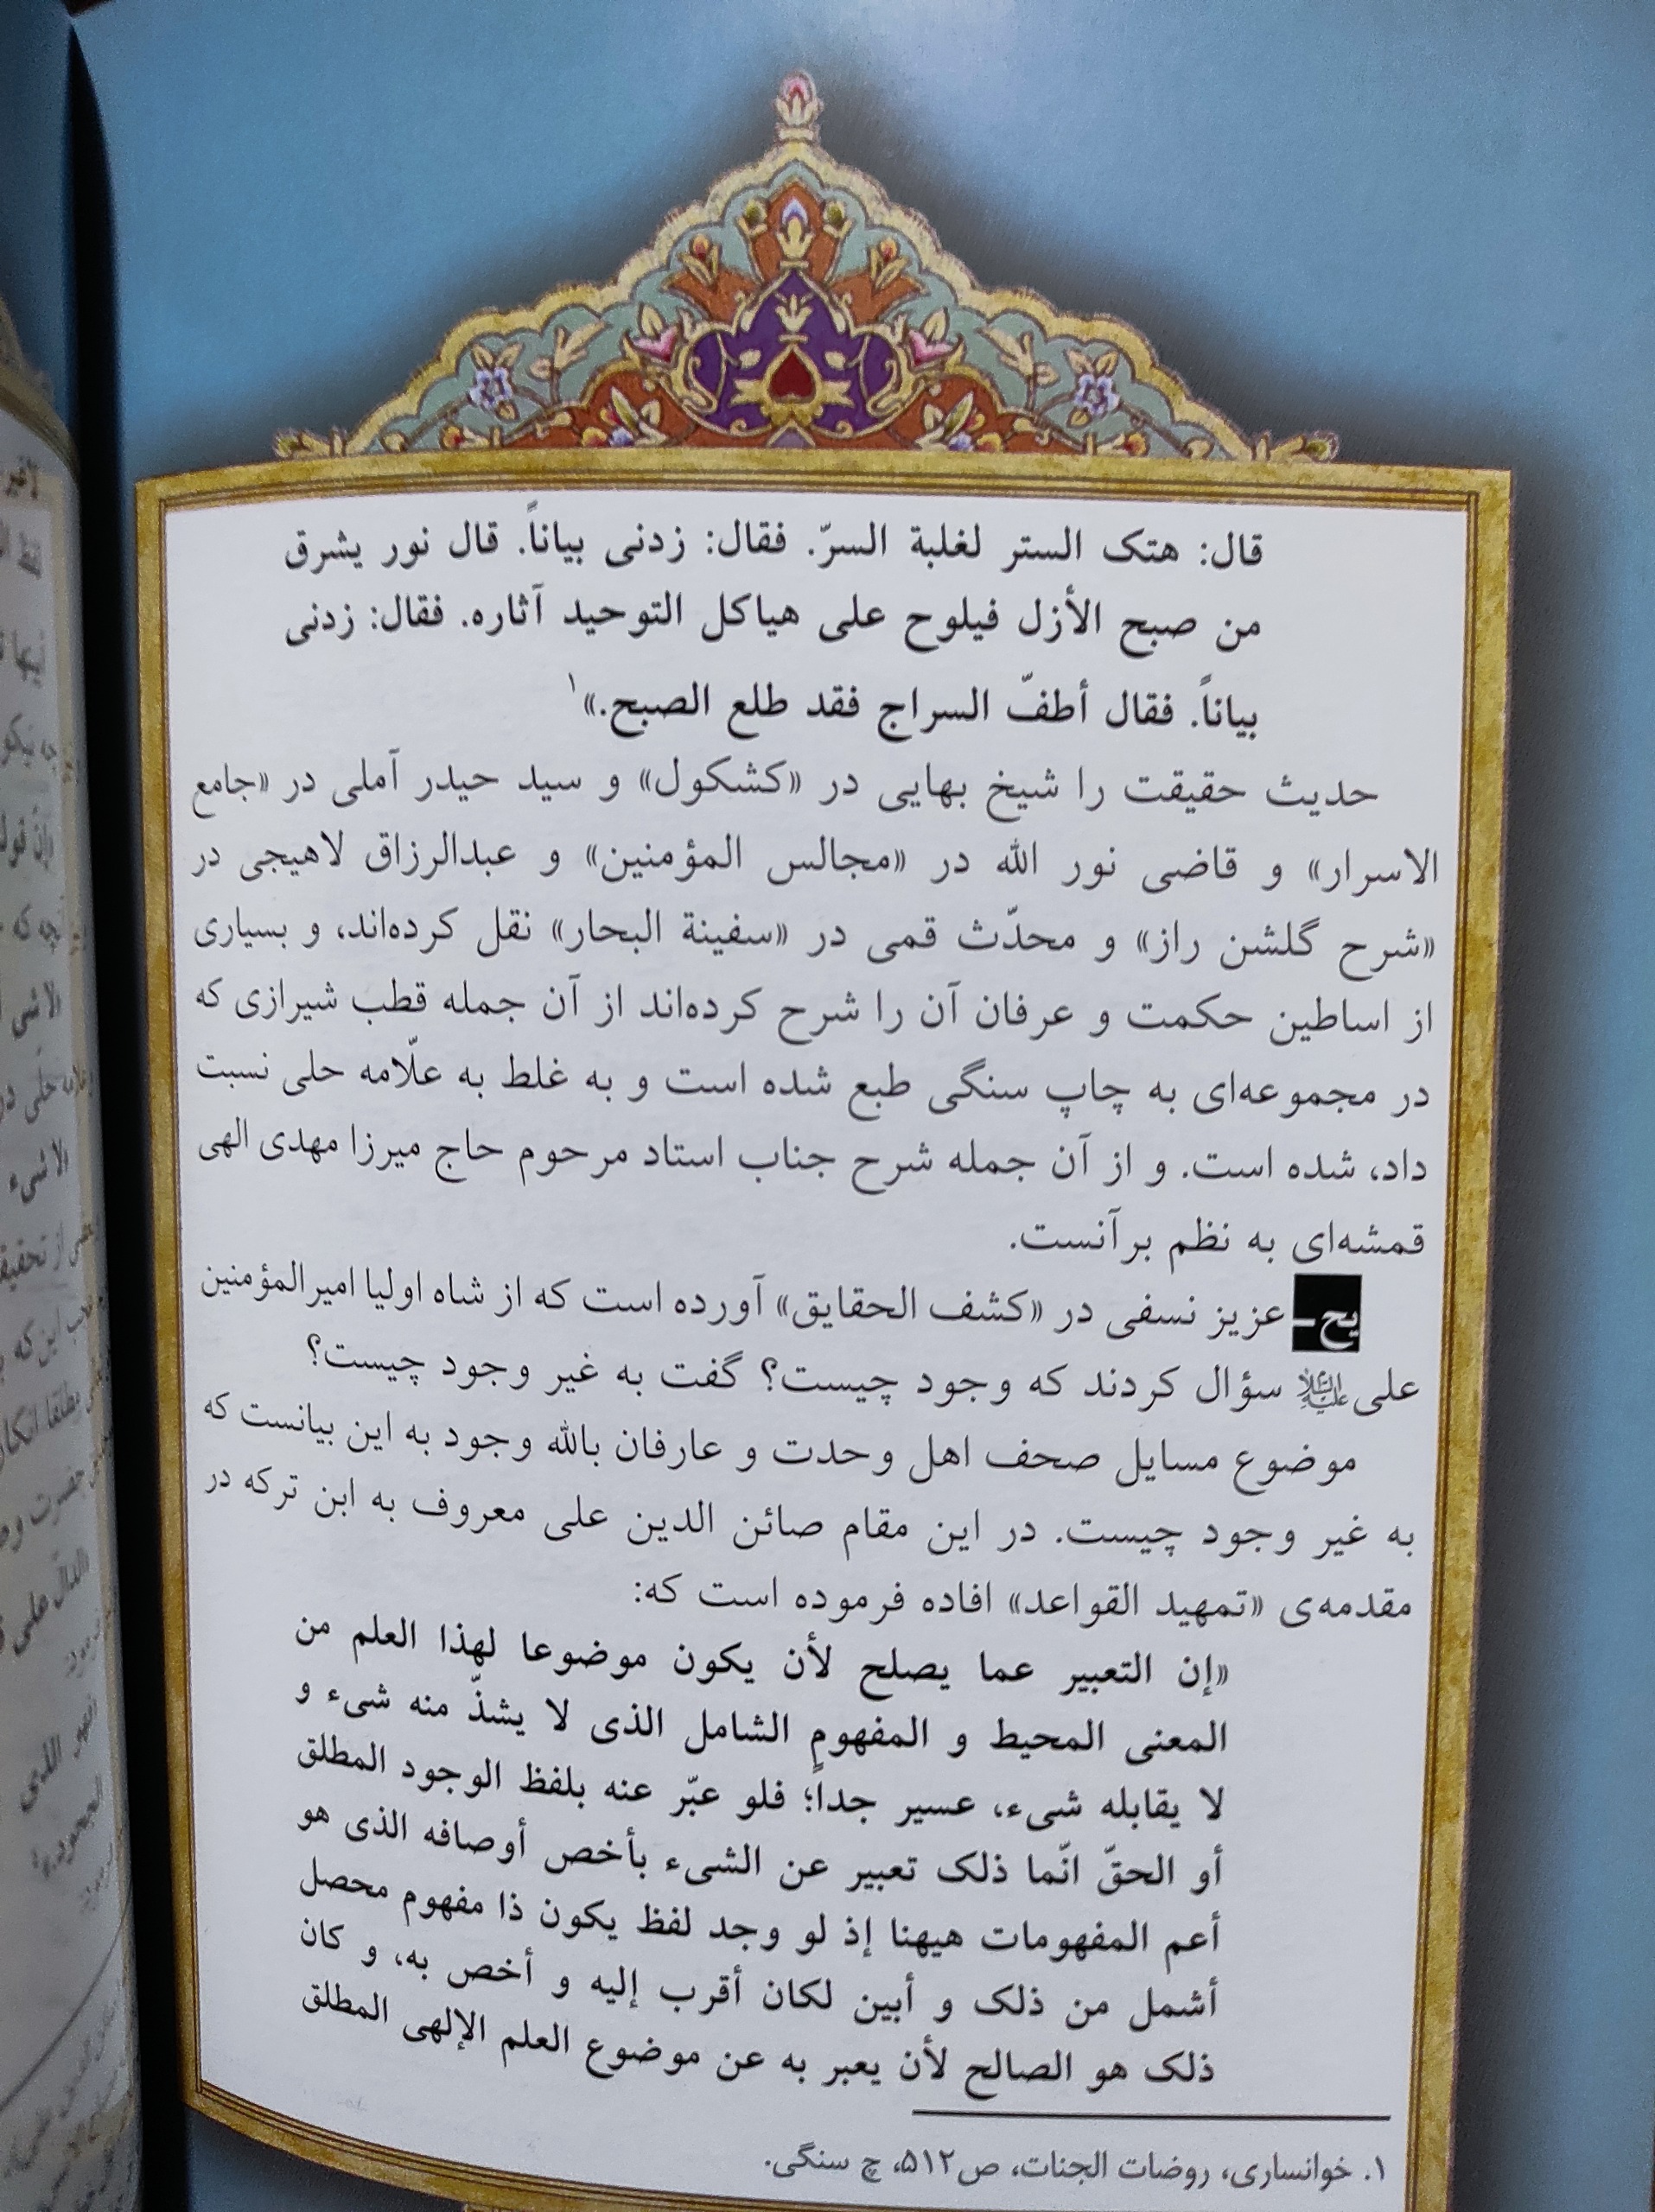 قال: هتک الستر لغلبة السرّ. فقال: زدنی بیاناً. قال نور یشرق
من صبح الأزل فیلوح علی هیاکل التوحید آثاره. فقال: زدنی
بیاناً. فقال أطفّ السراج فقد طلع الصبح.»۱
حدیث حقیقت را شیخ بهایی در «کشکول» و سید حیدر آملی در «جامع
الاسرار» و قاضی نور الله در «مجالس المؤمنین» و عبدالرزاق لاهیجی در
«شرح گلشن راز» و محدّث قمی در «سفینة البحار» نقل کرده‌اند، و بسیاری
از اساطین حکمت و عرفان آن را شرح کرده‌اند از آن جمله قطب شیرازی که
در مجموعه‌ای به چاپ سنگی طبع شده است و به غلط به علّامه حلی نسبت
داد، شده است. و از آن جمله شرح جناب استاد مرحوم حاج میرزا مهدی الهی
قمشه‌ای به نظم بر آنست.
یح- عزیز نسفی در «کشف الحقایق» آورده است که از شاه اولیا امیرالمؤمنین
علی علیه‌السلام سؤال کردند که وجود چیست؟ گفت به غیر وجود چیست؟
موضوع مسایل صحف اهل وحدت و عارفان بالله وجود به این بیانست که
به غیر وجود چیست. در این مقام صائن الدین علی معروف به ابن ترکه در
مقدمه‌ی «تمهید القواعد» افاده فرموده است که:
«إن التعبیر عما یصلح لأن یکون موضوعا لهذا العلم من
المعنی المحیط و المفهوم الشامل الذی لا یشذّ منه شیء و
لا یقابله شیء، عسیر جداً؛ فلو عبّر عنه بلفظ الوجود المطلق
أو الحقّ انّما ذلک تعبیر عن الشیء بأخص أوصافه الذی هو
أعم المفهومات هیهنا إذ لو وجد لفظ یکون ذا مفهوم محصل
أشمل من ذلک و أبین لکان أقرب إلیه و أخص به، و کان
ذلک هو الصالح لأن یعبر به عن موضوع العلم الإلهی المطلق
۱. خوانساری، روضات الجنات، ص۵۱۲، چ سنگی.